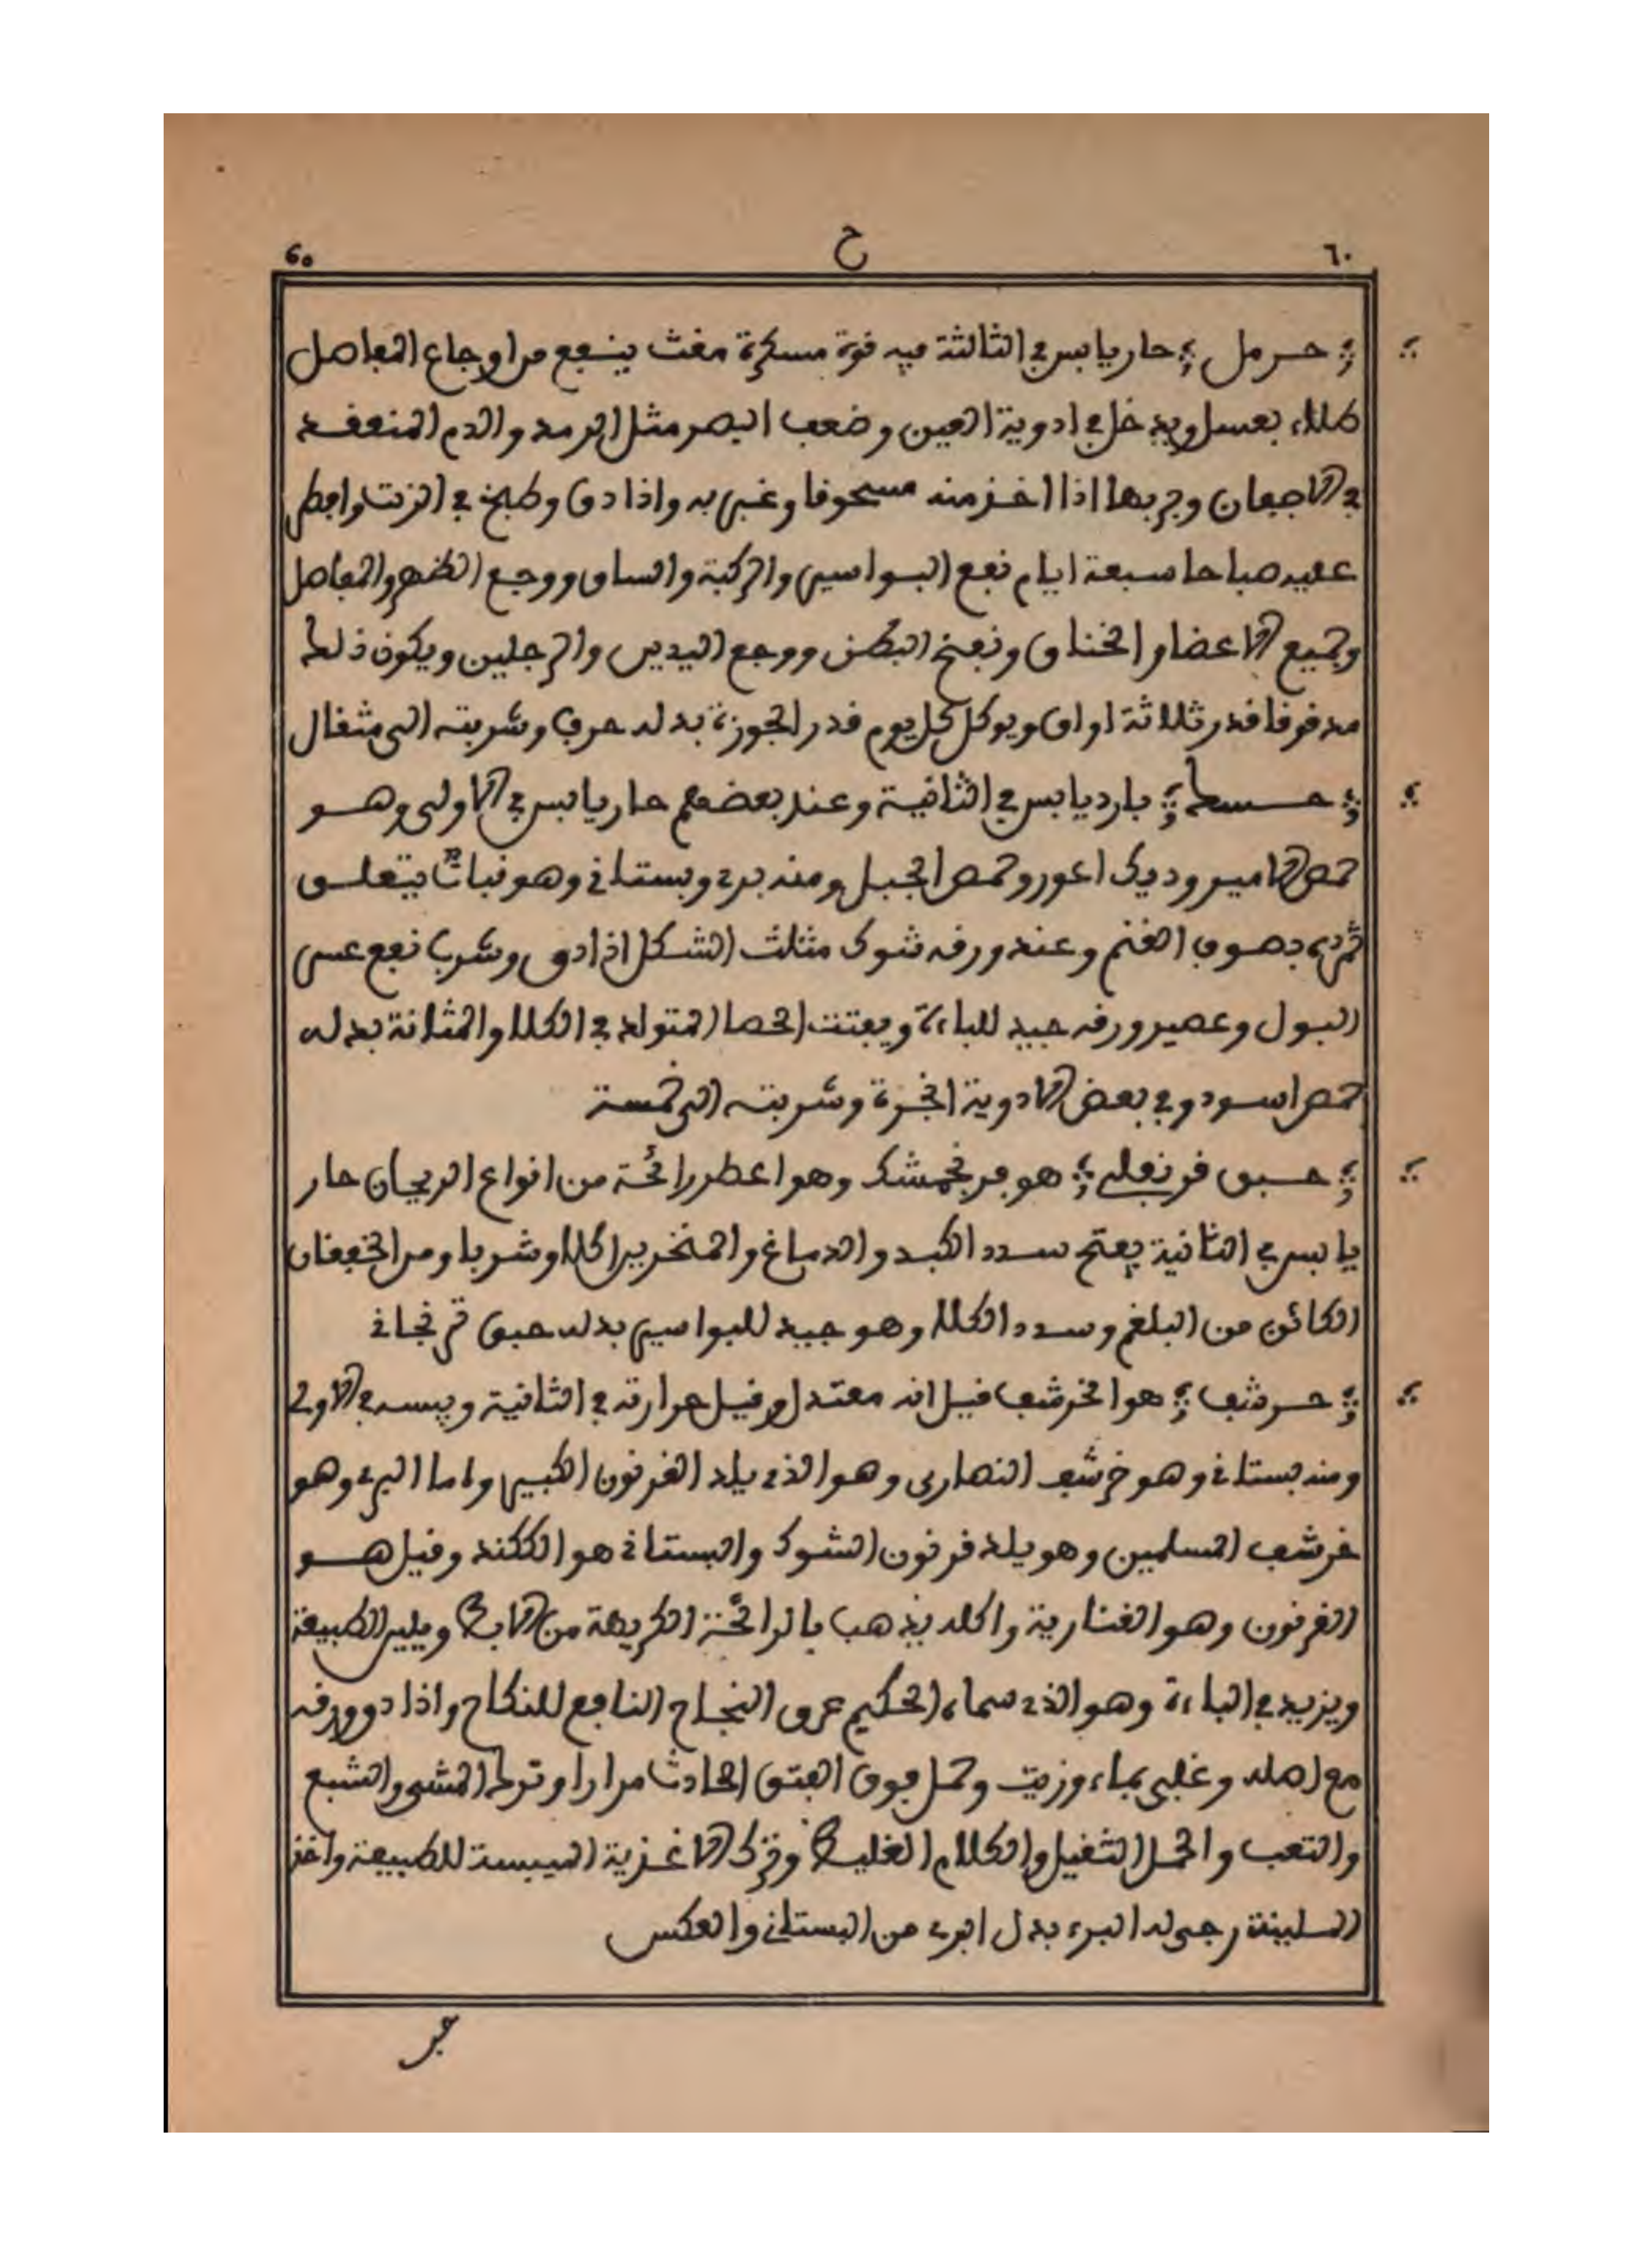 ٦٠ ح 60
حرمل حار يابس في الثالثة فيه قوة مسكرة مغث ينفع من اوجاع المفاصل
طلاء بعسل ويدخل في ادوية العين وضعف البصر مثل الرمد والدم المنعقد
في الاجفان وجربها اذا اخذ منه مسحوقا وغبر به واذا دق وطبخ في الزيت وافطر
عليه صباحا سبعة ايام نفع البواسير والركبة والساق ووجع الظهر والمفاصل
وجميع الاعضا والخناق ونفخ البطن ووجع اليدين والرجلين ويكون ذلك
مدقوقا قدر ثلاثة اواق ويوكل كل يوم قدر الجوزة بدله حرف وشربته الى مثقال
حسك بارد يابس في الثانية وعند بعضهم حار يابس في الاولى وهو
حمص الامير وديك اعور وحمص الجبل ومنه بري وبستاني وهو نبات يتعلق
ثمره بصوف الغنم وعند ورقه شوك مثلث الشكل اذا دق وشرب نفع عسر
البول وعصير ورقه جيد للباءة ويفتت الحصا المتولد في الكلا والمثانة بدله
حمص اسود وفي بعض الادوية الخبزة وشربته الى خمسة
حبق قرنفلي هو فرنجمشك وهو اعطر رائحة من انواع الريحان حار
يابس في الثانية يفتح سدد الكبد والدماغ والمنخرين اكلا وشربا ومن الخفقان
الكائن من البلغم وسدد الكلا وهو جيد للبواسير بدله حبق ترنجاني
حرشف هو الخرشف قيل انه معتدل وقيل حرارته في الثانية ويبسه في الاولى
ومنه بستاني وهو خرشف النصارى وهو الذي يلد القرنون الكبير واما البري وهو
خرشف المسلمين وهو يلد قرنون الشوك والبستاني هو الككند وقيل هو
القرنون وهو القنارية واكله يذهب بالرائحة الكريهة من الابط ويلين الطبيعة
ويزيد في الباءة وهو الذي سماه الحكيم عرق النجاح النافع للنكاح واذا دق ورقه
مع اصله وغلي بماء وزيت وحمل فوق الفتق الحادث مرارا وترك المشي والشبع
والتعب والحمل الثقيل والكلام الغليظ وترك الاغذية الميبسة للطبيعة واخذ
الملينة رجى له البرء بدل البري من البستاني والعكس